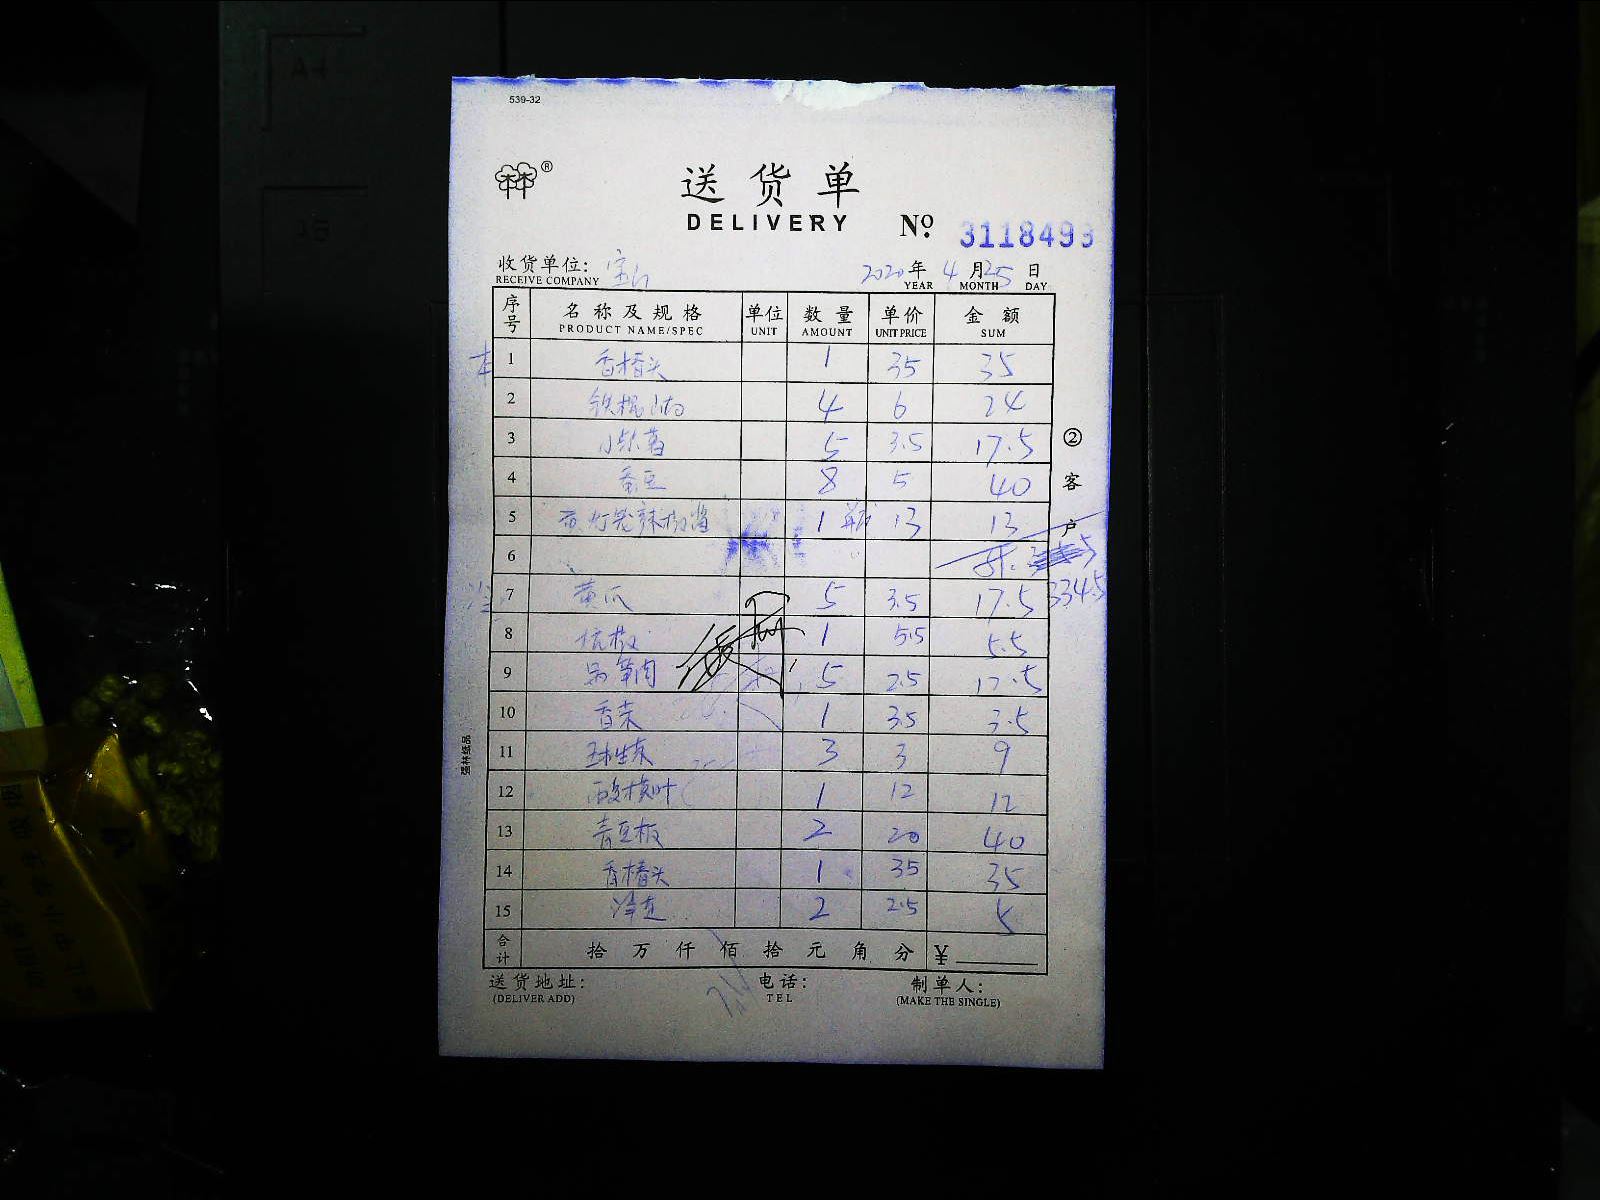 539-32
送货单
DELIVERY
№ 3118493
收货单位:
RECEIVE COMPANY
2020年 4月25日
YEAR MONTH DAY
序号 名称及规格 单位 数量 单价 金额
PRODUCT NAME/SPEC UNIT AMOUNT UNIT PRICE SUM
1 香椿头 1 35 35
2 铁棍山药 4 6 24
3 小紫薯 5 3.5 17.5
4 蚕豆 8 5 40
5 灯笼辣椒酱 1 13 13
6
334.5
7 黄瓜 5 3.5 17.5
8 杭椒 1 5.5 5.5
9 5 2.5
10 香菜 1 3.5 3.5
11 球生菜 3 3 9
12 1 12 12
13 青豆板 2 20 40
14 香椿头 1 35 35
15 2 2.5 5
合计 拾 万 仟 佰 拾 元 角 分 ¥
② 客户
强林纸品
送货地址: 电话: 制单人:
(DELIVER ADD) TEL (MAKE THE SINGLE)